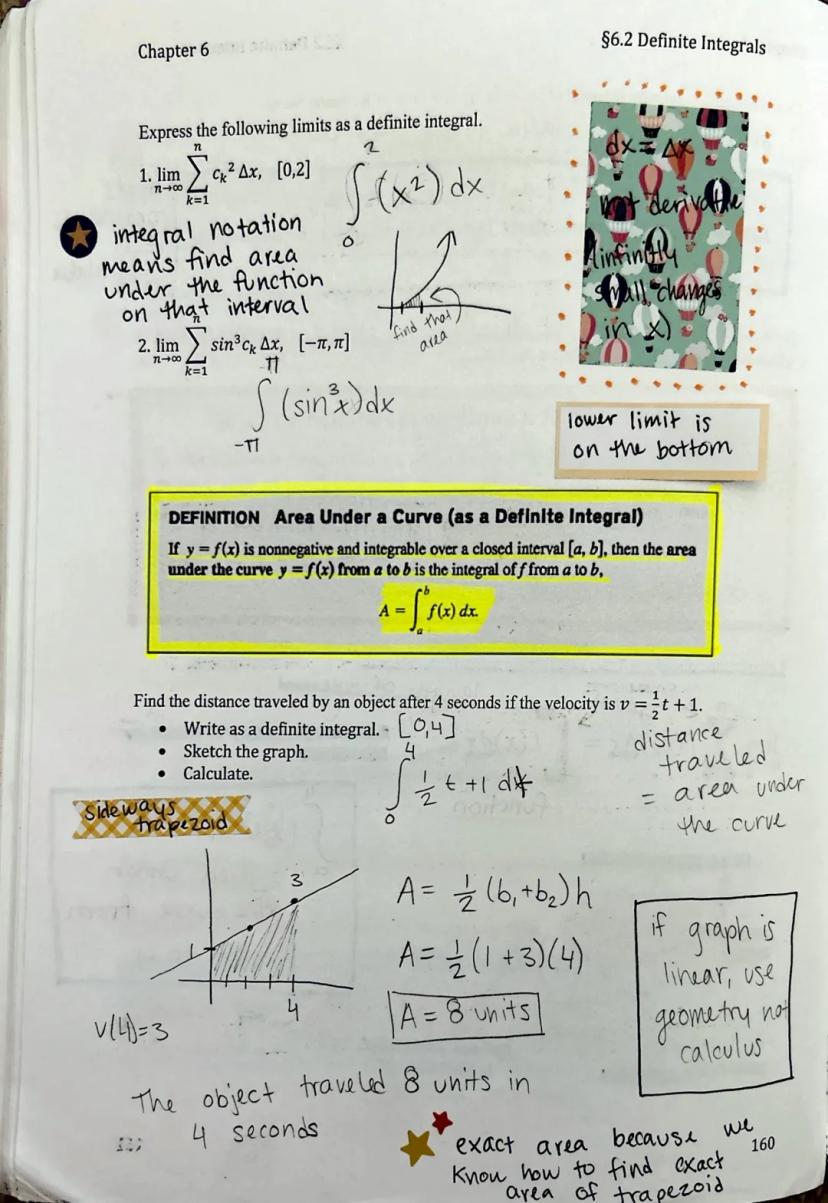 Chapter 6
§6.2 Definite Integrals
Express the following limits as a definite integral.
1. lim n→∞ n ∑ k=1 cₖ² Δx, [0,2]
2 ∫ 0 (x²) dx
dx = Δx
not derivative
(infinitly
small changes
in x)
integral notation
means find area
under the function
on that interval
find that
area
2. lim n→∞ n ∑ k=1 sin³cₖ Δx, [−π, π]
π ∫ -π (sin³x)dx
lower limit is
on the bottom
DEFINITION Area Under a Curve (as a Definite Integral)
If y = f(x) is nonnegative and integrable over a closed interval [a, b], then the area
under the curve y = f(x) from a to b is the integral of f from a to b,
A = ∫ₐᵇ f(x) dx.
Find the distance traveled by an object after 4 seconds if the velocity is v = ½t + 1.
• Write as a definite integral. [0,4]
• Sketch the graph.
• Calculate.
4 ∫ 0 ½ t +1 dt
distance
traveled
= area under
the curve
sideways
trapezoid
3
1
4
v(4)=3
A = ½ (b₁+b₂)h
A = ½ (1 + 3)(4)
A = 8 units
if graph is
linear, use
geometry not
calculus
The object traveled 8 units in
4 seconds
exact area because we
know how to find exact
area of trapezoid
160